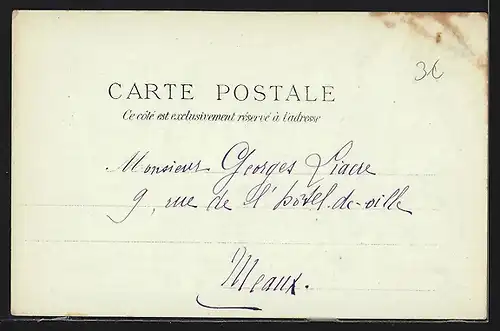 3€
CARTE POSTALE
Ce côté est exclusivement réservé à l'adresse
Monsieur Georges Liacre
9, rue de l'hôtel-de-ville
Meaux.